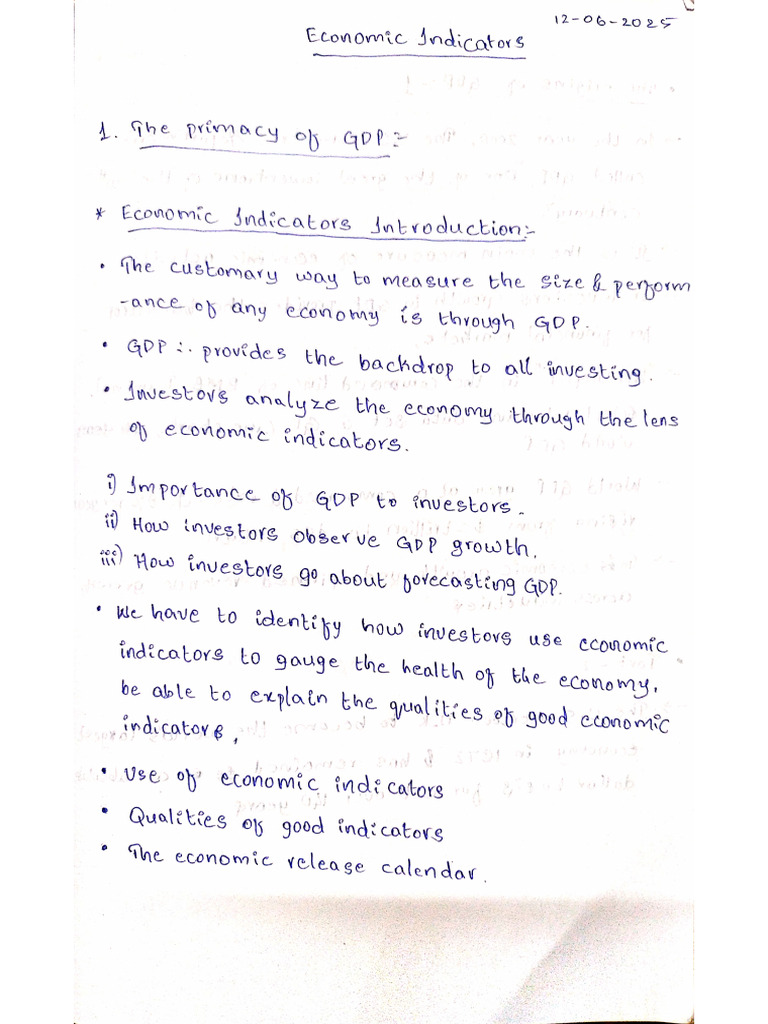 12-06-2025
Economic Indicators
1. The primacy of GDP:-
* Economic Indicators Introduction:-
• The customary way to measure the size & perform
-ance of any economy is through GDP.
• GDP :- provides the backdrop to all investing.
• Investors analyze the economy through the lens
of economic indicators.
i) Importance of GDP to investors.
ii) How investors observe GDP growth.
iii) How investors go about forecasting GDP.
• We have to identify how investors use economic
indicators to gauge the health of the economy,
be able to explain the qualities of good economic
indicators.
• Use of economic indicators
• Qualities of good indicators
• The economic release calendar.